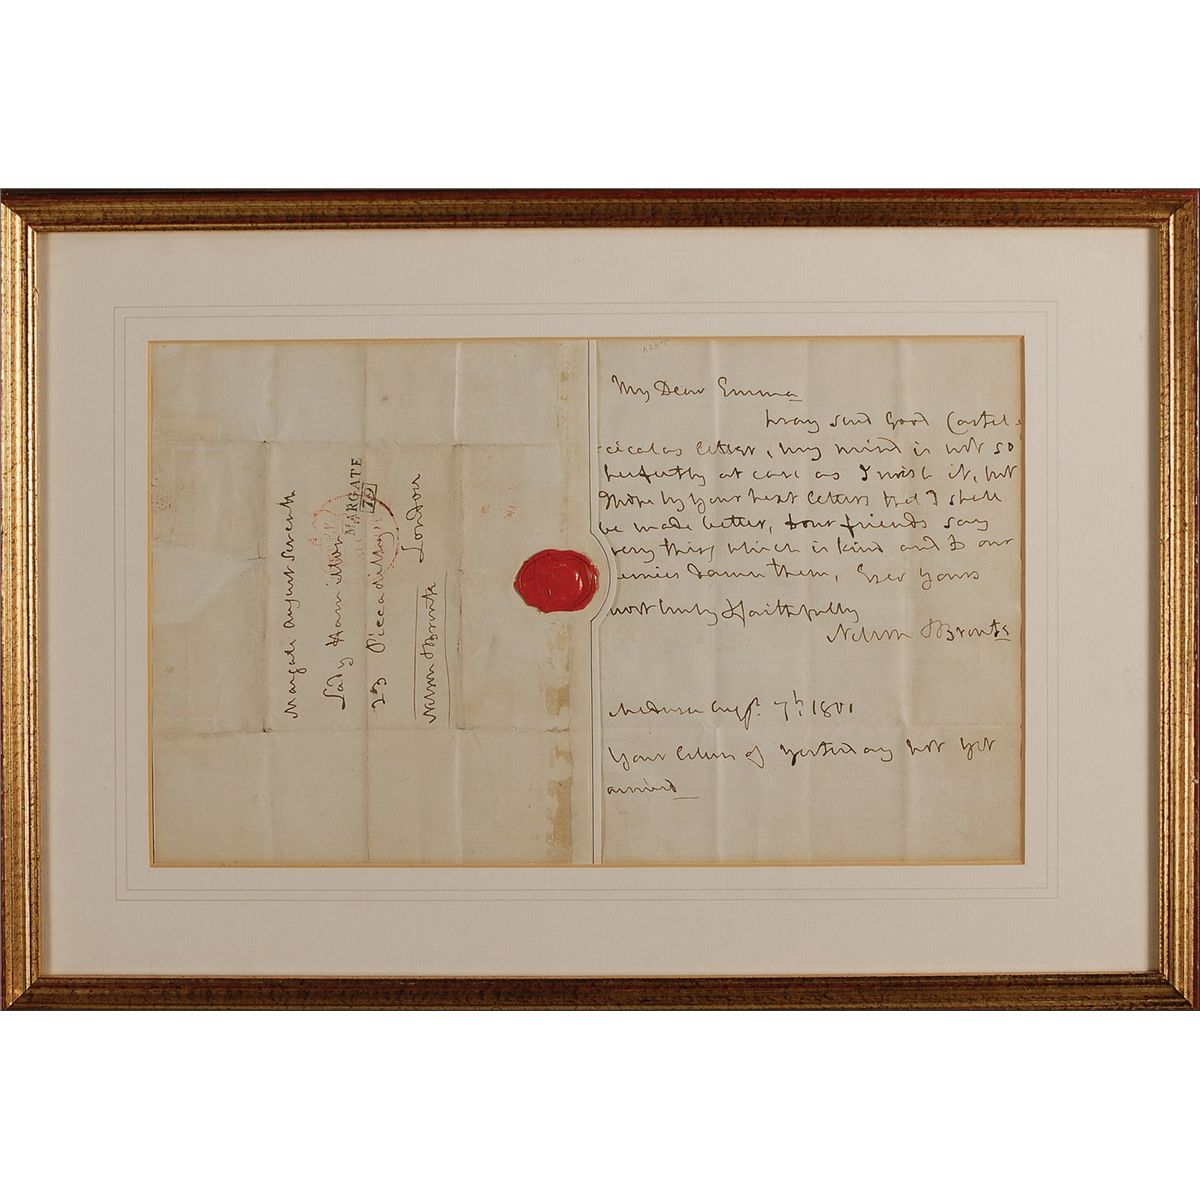 Margate august seventh
Lady Hamilton
23 Piccadilly
London
Nelson & Bronte
MARGATE
79
My Dear Emma
pray send good Castel-
cicalas letter, my mind is not so
perfectly at ease as I wish it, but
I hope by your next letters that I shall
be made better, to our friends say
every thing which is kind and to our
Enemies damn them, Ever yours
most truly & faithfully
Nelson & Bronte
Medusa augst. 7th 1801
Your letters of yesterday not yet
arrived